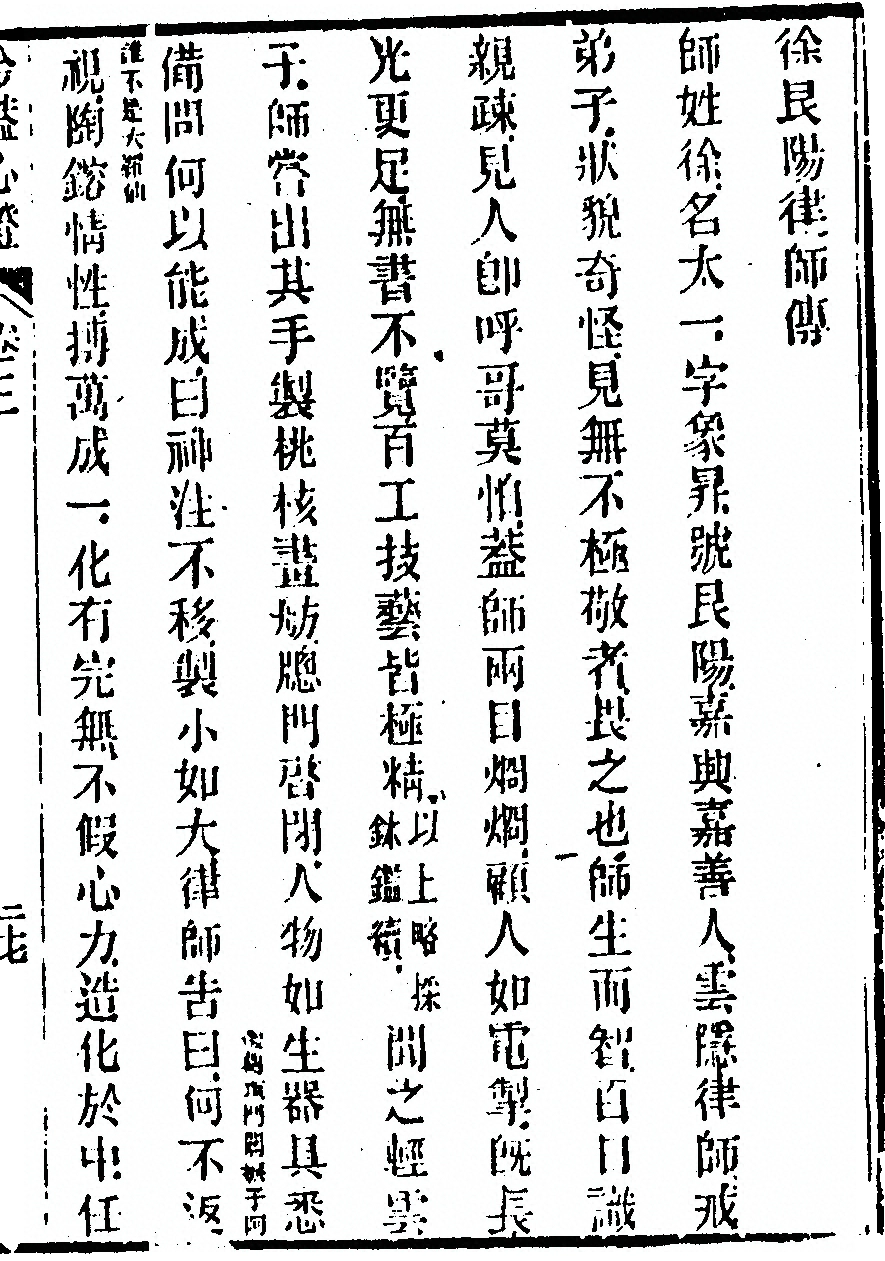 徐艮陽律師傳
師姓徐名太一字象昇號艮陽嘉興嘉善人雲隱律師戒
弟子狀貌奇怪見無不極敬者畏之也師生而智百日識
親疎見人卽呼哥莫怕葢師兩目烱烱顧人如電掣旣長
光更足無書不覽百工技藝皆極精以上略採鉢鑑續聞之輕雲
子師嘗出其手製桃核畫舫牕門啓閉人物如生器具悉
備問何以能成曰神注不移製小如大律師吿曰何不返
誰不是大羅仙
視陶鎔情性摶萬成一化有完無不假心力造化於中任
卷三
二七